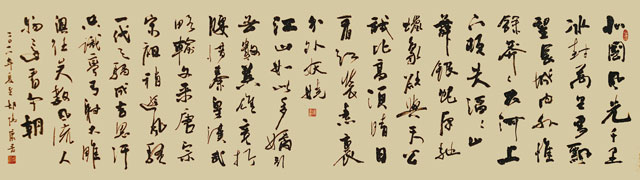 北國風光千里
冰封萬里雪飄
望長城内外惟
餘莽莽大河上
下頓失滔滔山
舞銀蛇原馳
蠟象欲與天公
試比高須晴日
看紅裝素裹
分外妖嬈
江山如此多嬌引
無數英雄競折
腰惜秦皇漢武
略輸文采唐宗
宋祖稍遜風騷
一代天驕成吉思汗
只識彎弓射大雕
俱往矣數風流人
物還看今朝